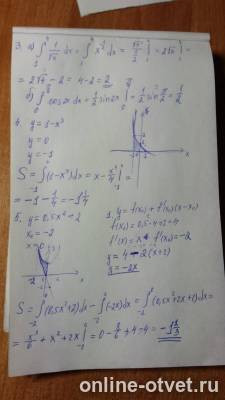 3. а) ∫₁⁴ 1/√x dx = ∫₁⁴ x^(-1/2) dx = √x/(1/2) |₁⁴ = 2√x |₁⁴ =
= 2√4 - 2 = 4 - 2 = 2
б) ∫₀ cos2x dx = 1/2 sin2x |₀ = 1/2 sin π/2 = 1/2
4. y = 1 - x³
y = 0
y = -1
S = ∫₋₁ (1 - x³)dx = x - x⁴/4 |₋₁ =
= -1 - 1/4 = -1 1/4
5. y = 0,5x² + 2
x₀ = -2
x = 0
1. y = f(x₀) + f'(x₀)(x - x₀)
f(x₀) = 0,5·4 + 2 = 4
f'(x) = x f'(x₀) = -2
y = 4 - 2(x + 2)
y = -2x
S = ∫₋₂⁰ (0,5x² + 2)dx - ∫₋₂⁰ (-2x)dx = ∫₋₂⁰ (0,5x² + 2x + 2)dx =
= x³/6 + x² + 2x |₋₂⁰ = 0 - 8/6 + 4 - 4 =
online-otvet.ru